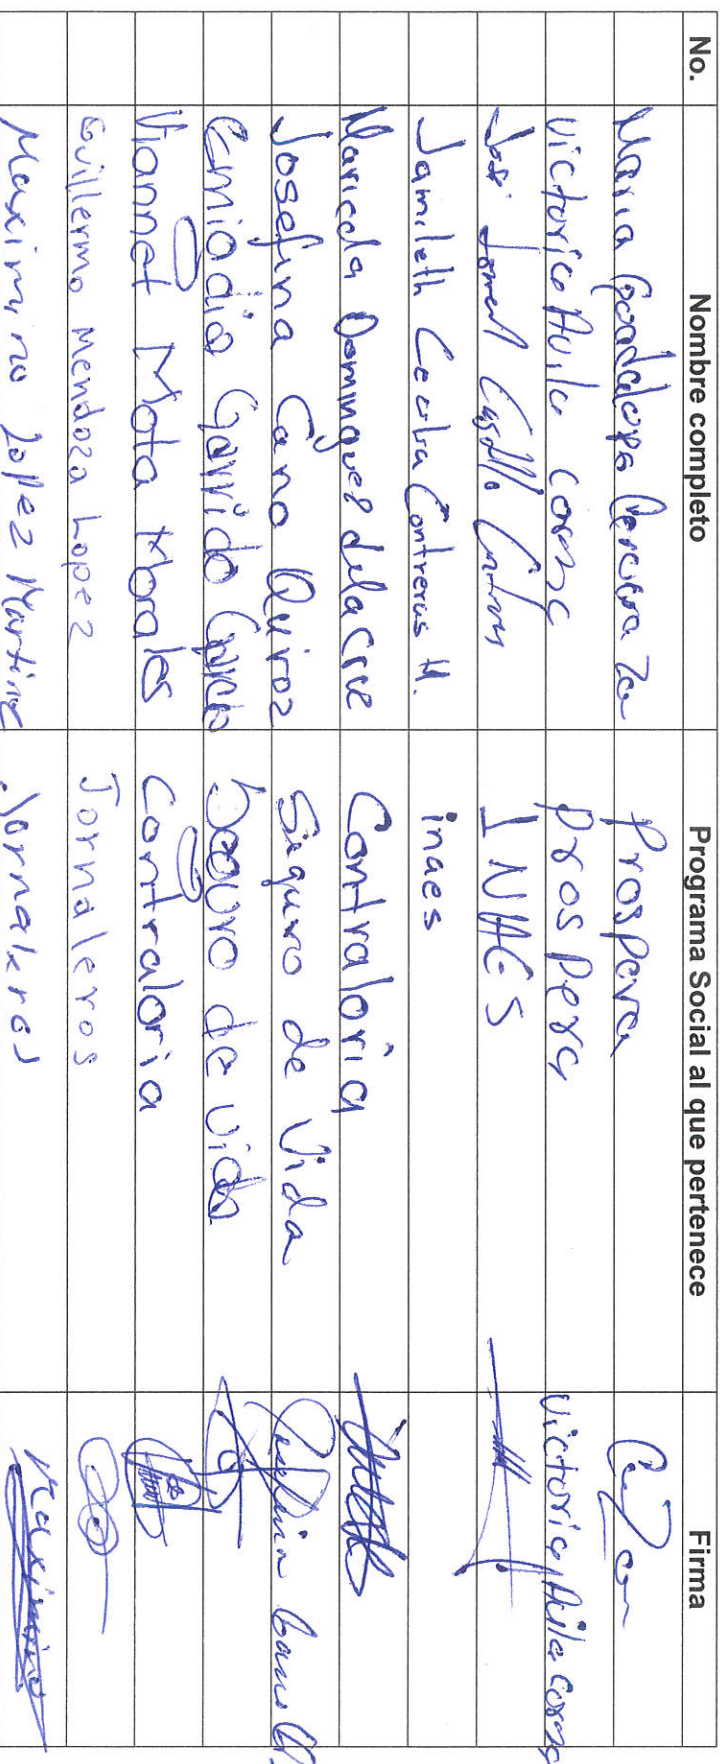 No. Nombre completo Programa Social al que pertenece Firma
Maria Guadalupe Prospera
Victorica Avila Prospera Victorica Avila
Jose INAES
Jamileth Contreras H. inaes
Maricela Dominguez delacruz Contraloria
Josefina Cano Quiroz Siguro de Vida
Emigdio Garrido Seguro de vida
Viannet Mota Morales Contraloria
Guillermo Mendoza Lopez Jornaleros
Maximino Lopez Martinez Jornaleros Maximino